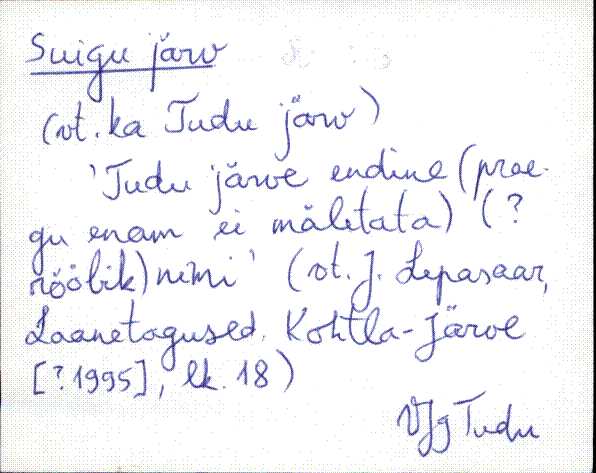 Suigu järv
(vt. ka Tudu järv)
'Tudu järve endine (prae-
gu enam ei mäletata) (?
rööbik) nimi' (vt. J. Lepasaar,
Laanetagused. Kohtla-Järve
[?1995], lk. 18)
VJg Tudu